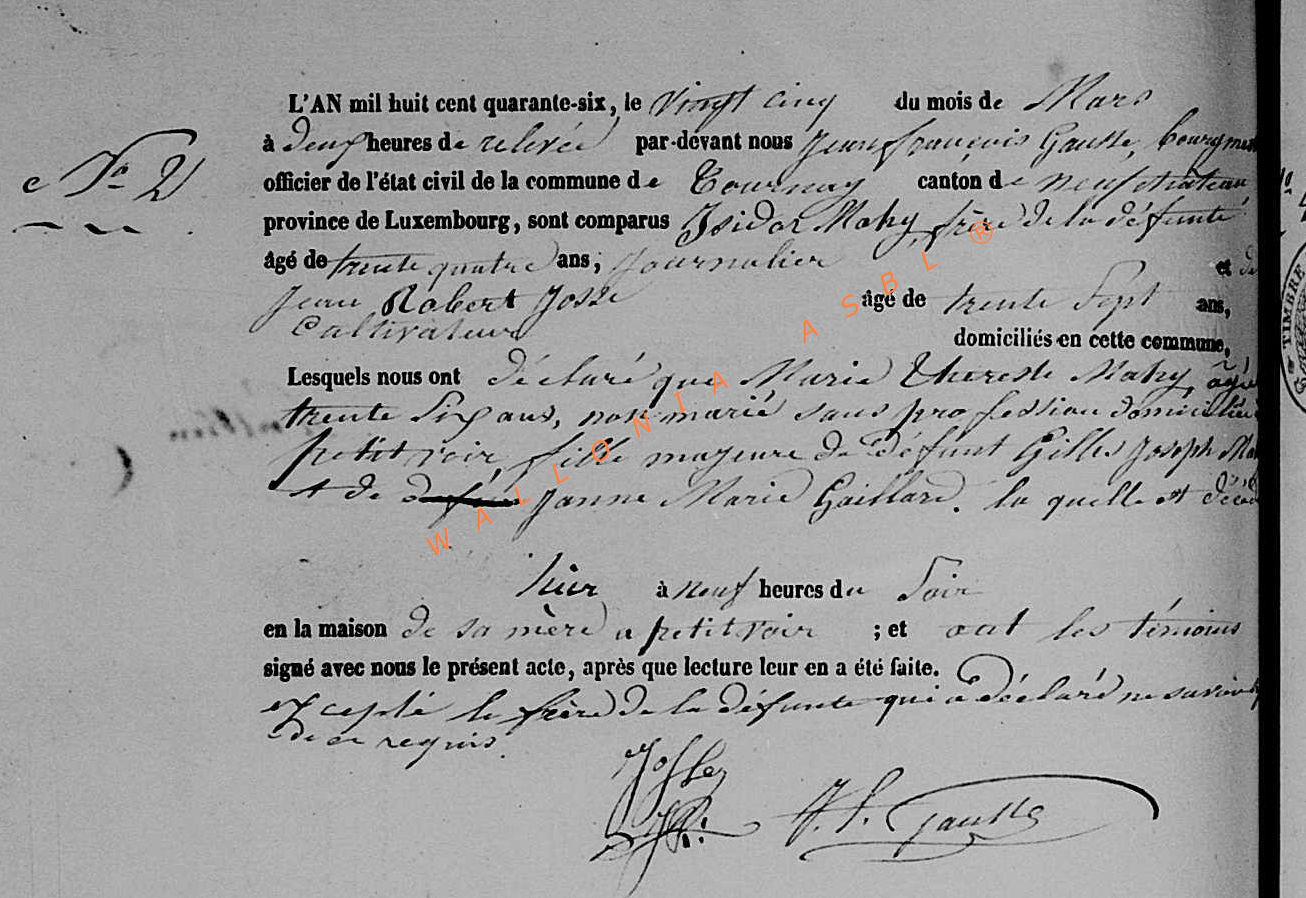 L'AN mil huit cent quarante-six, le vingt cinq du mois de Mars
à deux heures de relevée par-devant nous Jean françois Gausse, bourgmes
N° 2
officier de l'état civil de la commune de Tournay canton de neufchâteau
province de Luxembourg, sont comparus Isidor Mahy, frère de la défunte
âgé de trente quatre ans, journalier et de
Jean Robert Josse âgé de trente sept ans,
Cultivateur
domiciliés en cette commune,
Lesquels nous ont déclaré que Marie Therese Mahy, âgé
trente six ans, non marié sans profession domicilié
petitvoir, fille majeure de défunt Gilles Joseph Ma
et de Janne Marie Gaillard. la quelle est décé
hier à neuf heures du Soir
en la maison de sa mère a petitvoir ; et ont les témoins
signé avec nous le présent acte, après que lecture leur en a été faite.
excepté le frère de la défunte qui a déclaré ne savoir
de ce requis.
Josse
J. f. Gausse
WALLONIA ASBL ®
TIMBRE